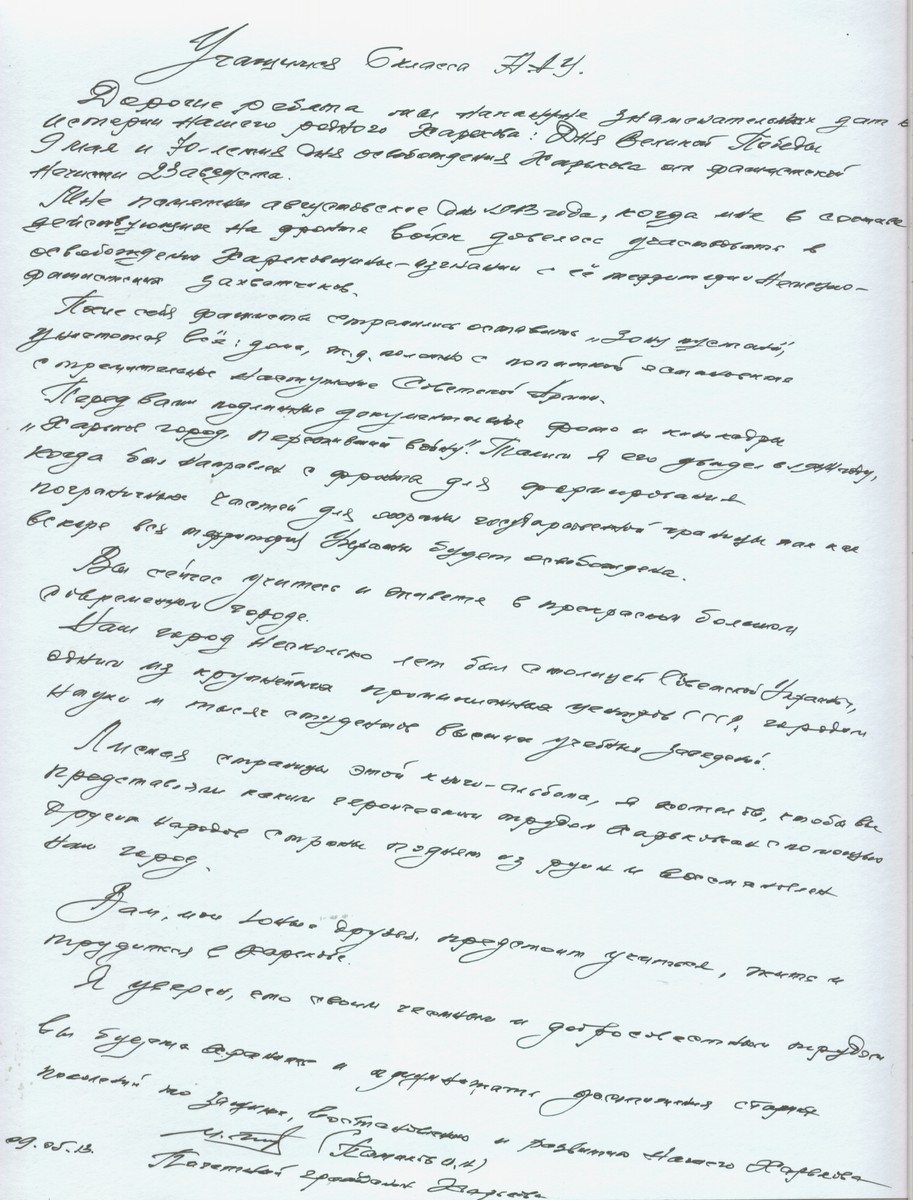 Учащимся 6 класса
Дорогие ребята мы накануне знаменательных дат в
истории нашего родного Харькова: Дня Великой Победы
9 мая и 70-летия дня освобождения Харькова от фашистской
нечисти 23 августа.
Мне памятны августовские дни 1943 года, когда мне в составе
действующих на фронте войск довелось участвовать в
освобождении Харьковщины – изгнании с её территории немецко-
фашистских захватчиков.
После себя фашисты стремились оставить „Зону пустыни",
уничтожая всё: дома, ж.д. полотно с попыткой остановить
стремительное наступление Советской Армии.
Перед вами подлинные документальные фото и кинокадры
„Харьков город, переживший войну". Таким я его увидел в
когда был направлен с фронта для формирования
пограничных частей для охраны государственной границы так как
вскоре вся территория Украины будет освобождена.
Вы сейчас учитесь и живете в прекрасном большом
современном городе.
Наш город несколько лет был столицей Советской Украины,
одним из крупнейших промышленных центров СССР, городом
науки и тысяч студентов высших учебных заведений.
Листая страницы этой книги-альбома, я хотел бы, чтобы вы
представили каким героическим трудом харьковчан с помощью
других народов страны поднят из руин и восстановлен
наш город.
Вам, мои юные друзья, предстоит учиться, жить и
трудиться в Харькове.
Я уверен, что своим честным и добросовестным трудом
вы будете хранить и приумножать достижения старших
поколений по защите, восстановлению и развитию нашего Харькова
09.05.13.
Почетный гражданин Харькова